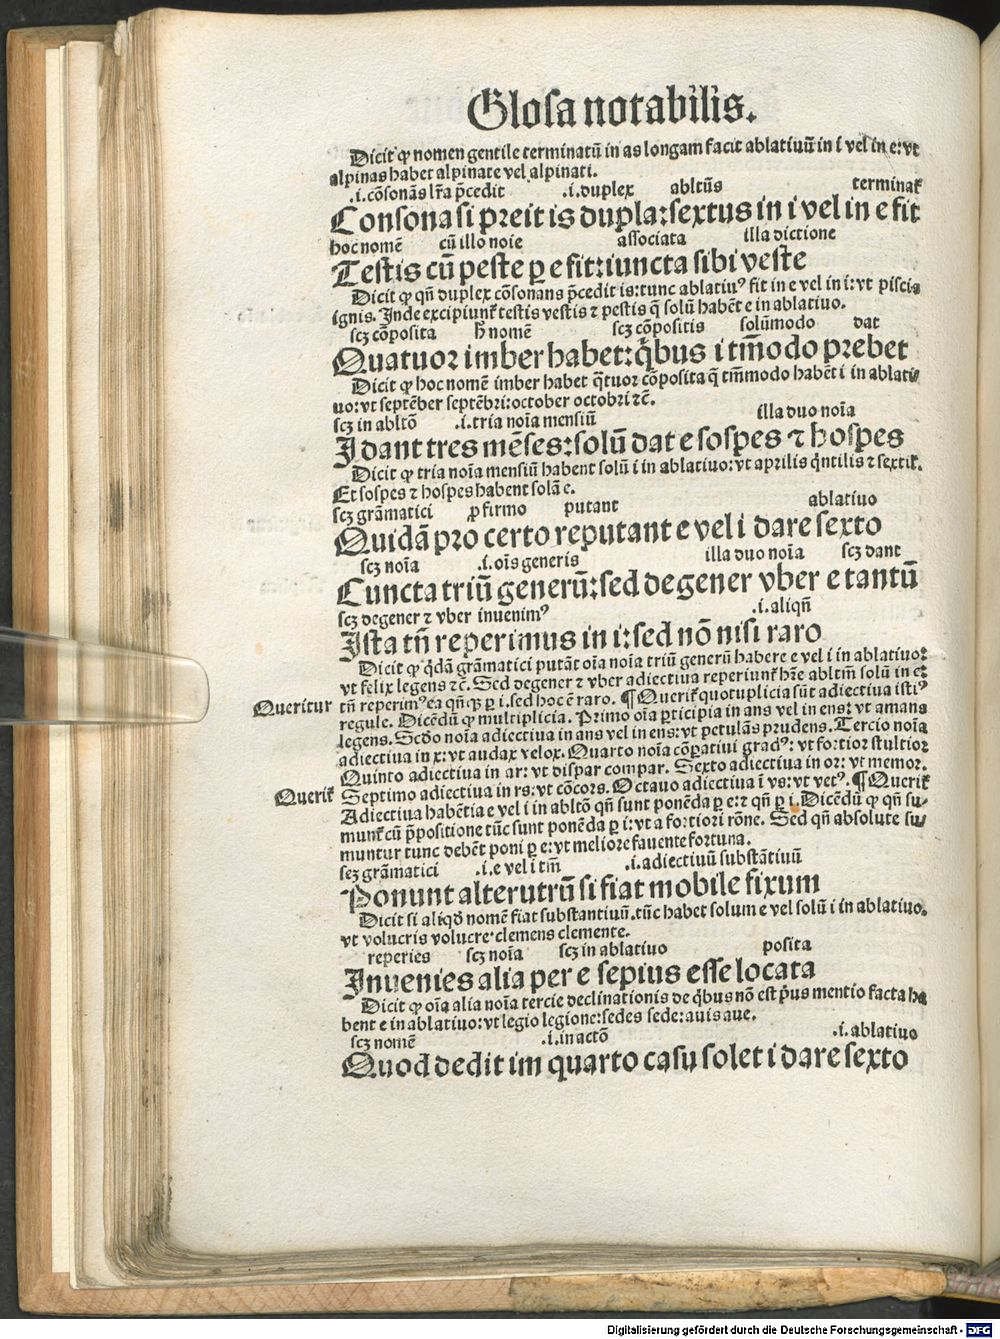 Glosa notabilis.
Dicit ꝙ nomen gentile terminatū in as longam facit ablatiuū in i vel in e: vt
alpinas habet alpinate vel alpinati.
.i. cōsonās lr̄a p̄cedit .i. duplex abltūs terminat᷑
Consona si preit is dupla: sextus in i vel in e fit
hoc nomē cū illo noīe associata illa dictione
Testis cū peste ꝑ e fit: iuncta sibi veste
Dicit ꝙ qn̄ duplex cōsonans p̄cedit is: tunc ablatiuꝰ fit in e vel in i: vt piscis
ignis. Inde excipiunt᷑ testis vestis ⁊ pestis q̄ solū habēt e in ablatiuo.
scꝫ cōposita h̄ nomē scꝫ cōpositis solūmodo dat
Quatuor imber habet: qͥbus i tm̄modo prebet
Dicit ꝙ hoc nomē imber habet q̄tuor cōposita q̄ tm̄modo habēt i in ablati-
uo: vt septēber septēbri: october octobri ⁊c̄.
scꝫ in abltō .i. tria noīa mensiū illa duo noīa
I dant tres mēses: solū dat e sospes ⁊ hospes
Dicit ꝙ tria noīa mensiū habent solū i in ablatiuo: vt aprilis qͥntilis ⁊ sextil᷑.
Et sospes ⁊ hospes habent solā e.
scꝫ grāmatici ꝓ firmo putant ablatiuo
Quidā pro certo reputant e vel i dare sexto
scꝫ noīa .i. oīs generis illa duo noīa scꝫ dant
Cuncta triū generū: sed degener vber e tantū
scꝫ degener ⁊ vber inuenimꝰ .i. aliqn̄
Ista tn̄ reperimus in i: sed nō nisi raro
Dicit ꝙ qͥdā grāmatici putāt oīa noīa triū generū habere e vel i in ablatiuo:
vt felix legens ⁊c̄. Sed degener ⁊ vber adiectiua reperiunt᷑ hr̄e abltm̄ solū in e:
Queritur tn̄ reperimꝰ ea qn̄qꝫ ꝑ i. sed hoc ē raro. ¶ Querit᷑ quotuplicia sūt adiectiua istiꝰ
regule. Dicēdū ꝙ multiplicia. Primo oīa ꝑticipia in ans vel in ens: vt amans
legens. Scd̄o noīa adiectiua in ans vel in ens: vt petulās prudens. Tercio noīa
adiectiua in x: vt audax velox. Quarto noīa cōꝑatiui gradꝰ: vt fortior stultior
Quinto adiectiua in ar: vt dispar compar. Sexto adiectiua in or: vt memor.
Querit᷑ Septimo adiectiua in rs: vt cōcors. Octauo adiectiua ī vs: vt vetꝰ. ¶ Querit᷑
Adiectiua habētia e vel i in abltō qn̄ sunt ponēda ꝑ e: ⁊ qn̄ ꝑ i. Dicēdū ꝙ qn̄ su-
munt᷑ cū p̄positione tūc sunt ponēda ꝑ i: vt a fortiori rōne. Sed qn̄ absolute su-
muntur tunc debēt poni ꝑ e: vt meliore fauente fortuna.
scꝫ grāmatici .i. e vel i tm̄ .i. adiectiuū substātiuū
Ponunt alterutrū si fiat mobile fixum
Dicit si aliqd̄ nomē fiat substantiuū. tūc habet solum e vel solū i in ablatiuo.
vt volucris volucre. clemens clemente.
reperies scꝫ noīa scꝫ in ablatiuo posita
Inuenies alia per e sepius esse locata
Dicit ꝙ oīa alia noīa tercie declinationis de qͥbus nō est pͥus mentio facta ha
bent e in ablatiuo: vt legio legione: sedes sede: auis aue.
scꝫ nomē .i. in actō .i. ablatiuo
Quod dedit im quarto casu solet i dare sexto
Digitalisierung gefördert durch die Deutsche Forschungsgemeinschaft - DFG